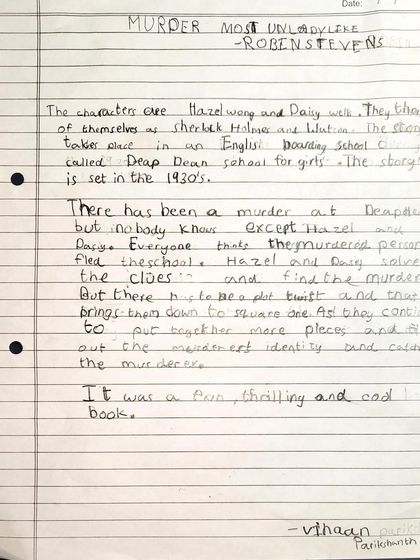 Date: / /
MURDER MOST UNLADYLIKE
-ROBINSTEVENS
The characters are Hazel wong and Daisy wells. They thin
of themselves as sherlock Holmes and Watson. The story
takes place in an English boarding school
called Deap Dean school for girls. The story
is set in the 1930's.
There has been a murder at Deapde
but nobody knows except Hazel and
Daisy. Everyone thinks the murdered person
fled theschool. Hazel and Daisy solve
the clues and find the murder
But there has to be a plot twist and that
brings them down to square one. As they conti
to put together more pieces and fi
out the murderers identity and catch
the murderer.
It was a fun, thrilling and cool
book.
-vihaan parik
Parikshanth